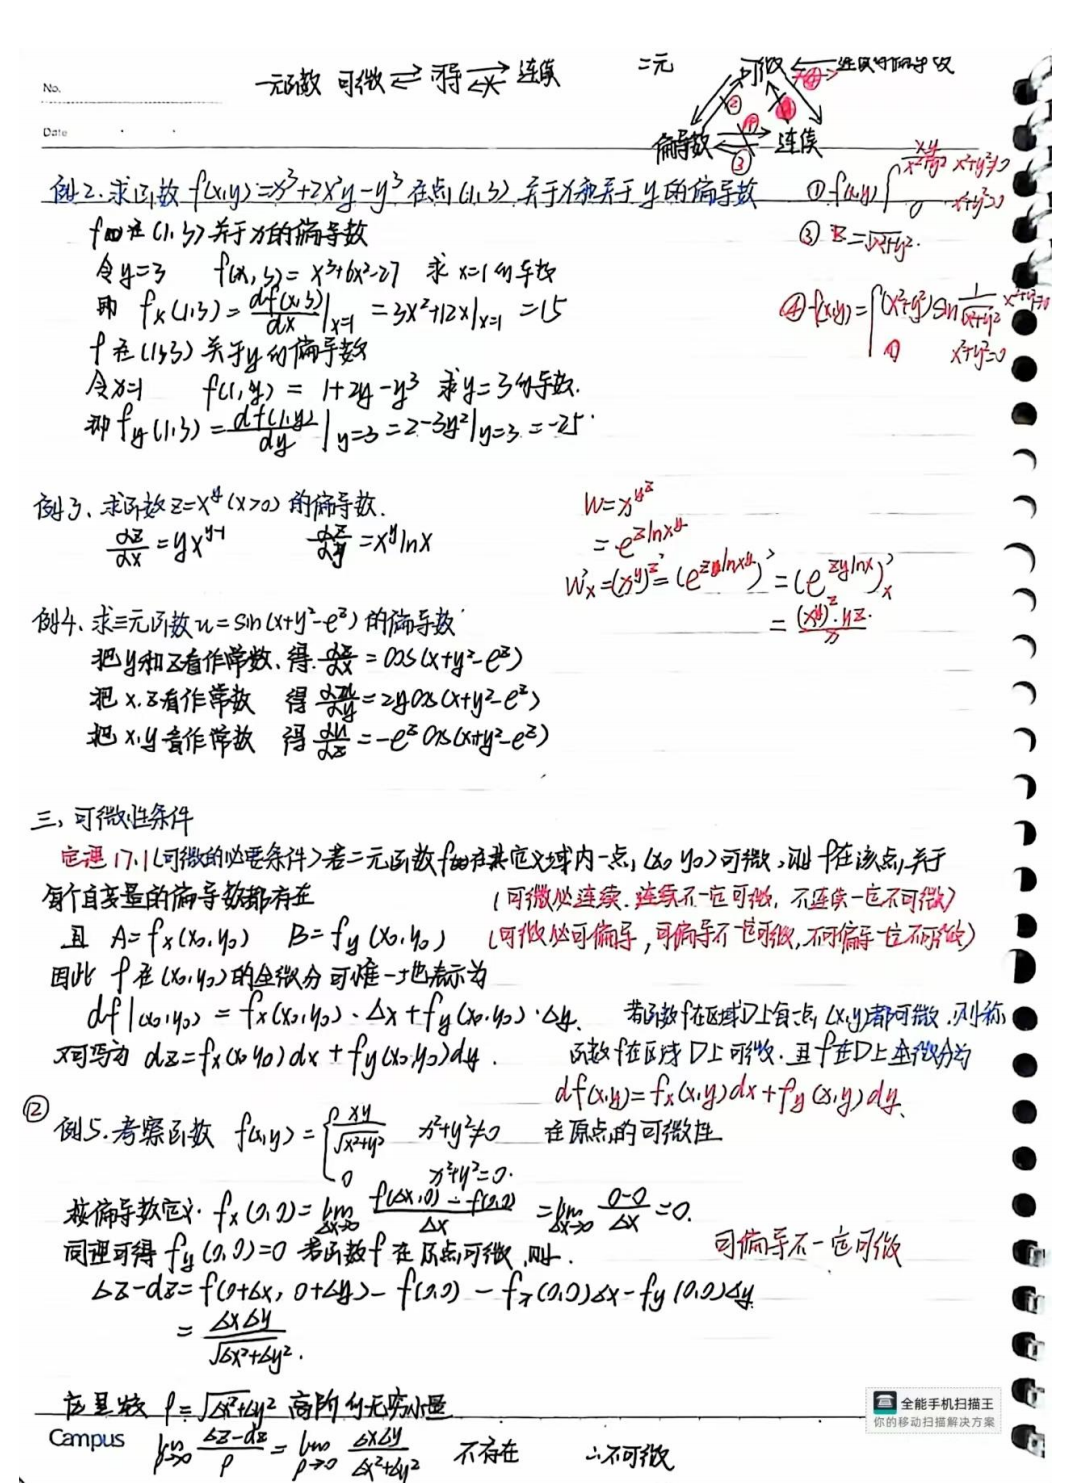 No.
Date
一元函数 可微 ⇄ 可导 ⇄ 连续
二元 可微 连续可偏导数
偏导数 连续
例2.求函数 f(x,y)=x³+2x²y-y³ 在点(1,3)关于x和关于y的偏导数
① f(x,y) { xy/(x²+y²) x²+y²≠0
0 x²+y²=0
f在(1,3)关于x的偏导数
③ z=√(x²+y²).
令y=3 f(x,3)=x³+6x²-27 求x=1的导数
即 fx(1,3)=df(x,3)/dx|x=1 =3x²+12x|x=1 =15
④ f(x,y)={ (x²+y²)sin 1/√(x²+y²) x²+y²≠0
0 x²+y²=0
f在(1,3)关于y的偏导数
令x=1 f(1,y)=1+2y-y³ 求y=3的导数.
即 fy(1,3)=df(1,y)/dy|y=3=2-3y²|y=3=-25.
例3、求函数z=x^y(x>0)的偏导数.
∂z/∂x=yx^(y-1) ∂z/∂y=x^y lnx
W=x^(y^z)
=e^(z ln x^y)
W'x=(x^y)^z'=(e^(z ln x^y))'=(e^(zy lnx))'x
=(x^y)^z·yz/x
例4、求三元函数u=sin(x+y²-e^z)的偏导数
把y和z看作常数、得 ∂z/∂x=cos(x+y²-e^z)
把x.z看作常数 得 ∂u/∂y=2ycos(x+y²-e^z)
把x,y看作常数 得 ∂u/∂z=-e^z cos(x+y²-e^z)
三、可微性条件
定理17.1(可微的必要条件)若二元函数f在其定义域内一点(x₀ y₀)可微,则f在该点关于
每个自变量的偏导数都存在
(可微必连续.连续不一定可微,不连续一定不可微)
且 A=fx(x₀,y₀) B=fy(x₀,y₀)
(可微必可偏导,可偏导不一定可微,不可偏导一定不可微)
因此 f在(x₀,y₀)的全微分可惟一地表示为
df|(x₀,y₀)=fx(x₀,y₀)·Δx+fy(x₀,y₀)·Δy.
又可写为 dz=fx(x₀ y₀)dx+fy(x₀,y₀)dy.
若函数f在区域D上每点(x,y)都可微.则称
函数f在区域D上可微.且f在D上全微分为
df(x,y)=fx(x,y)dx+fy(x,y)dy.
② 例5.考察函数 f(x,y)={ xy/√(x²+y²) x²+y²≠0 在原点的可微性
0 x²+y²=0.
按偏导数定义.fx(0,0)=lim Δx→0 f(Δx,0)-f(0,0)/Δx =lim Δx→0 0-0/Δx=0.
同理可得fy(0,0)=0 若函数f在原点可微,则.
可偏导不一定可微
Δz-dz=f(0+Δx, 0+Δy)-f(0,0)-fx(0,0)Δx-fy(0,0)Δy
=ΔxΔy/√(Δx²+Δy²).
应是较 ρ=√(Δx²+Δy²) 高阶的无穷小量
Campus
lim ρ→0 Δz-dz/ρ=lim ρ→0 ΔxΔy/Δx²+Δy² 不存在 ∴不可微
全能手机扫描王
你的移动扫描解决方案